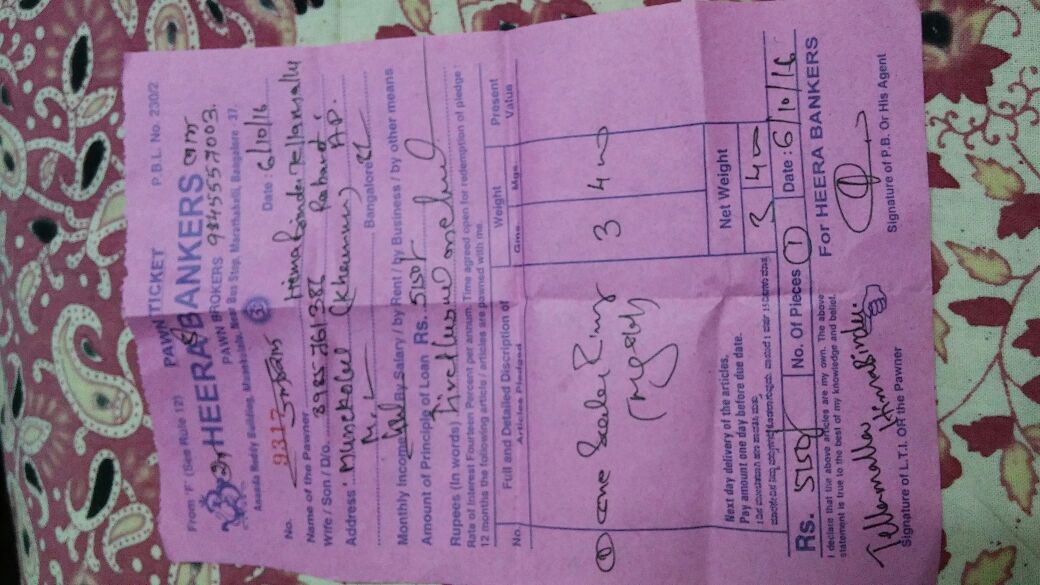 From 'F' (See Rule 12) PAWN TICKET P.B.L. No. 230/2
HEERA BANKERS
PAWN BROKERS 9845557003
Ananda Reddy Building, Munekolalu, Near Bus Stop, Marathahalli, Bangalore - 37.
No. 9317 Date : 6/10/16
Name of the Pawner Himabindu Tellamalla
Wife / Son / D/o. 8985761382
Address : Munekolel
Bangalore
Monthly Income By Salary / by Rent / by Business / by other means
Amount of Principle of Loan Rs.
Rupees (In words) Five thousand one hund
Rate of Interest Fourteen Percent per annum. Time agreed open for redemption of pledge :
12 months the following article / articles are pawned with me.
No. Full end Detailed Discription of Articles Pledged Weight Gms. Mgs. Present Value
① one Ring 3 400
Next day delivery of the articles,
Pay amount one day before due date.
Net Weight
3 400
Rs. No. Of Pieces ① Date : 6/10/16
I declare that the above articles are my own. The above
statement is true to the best of my knowledge and belief.
For HEERA BANKERS
Tellamalla Himabindu.
Signature of L.T.I. OR the Pawner
Signature of P.B. Or His Agent